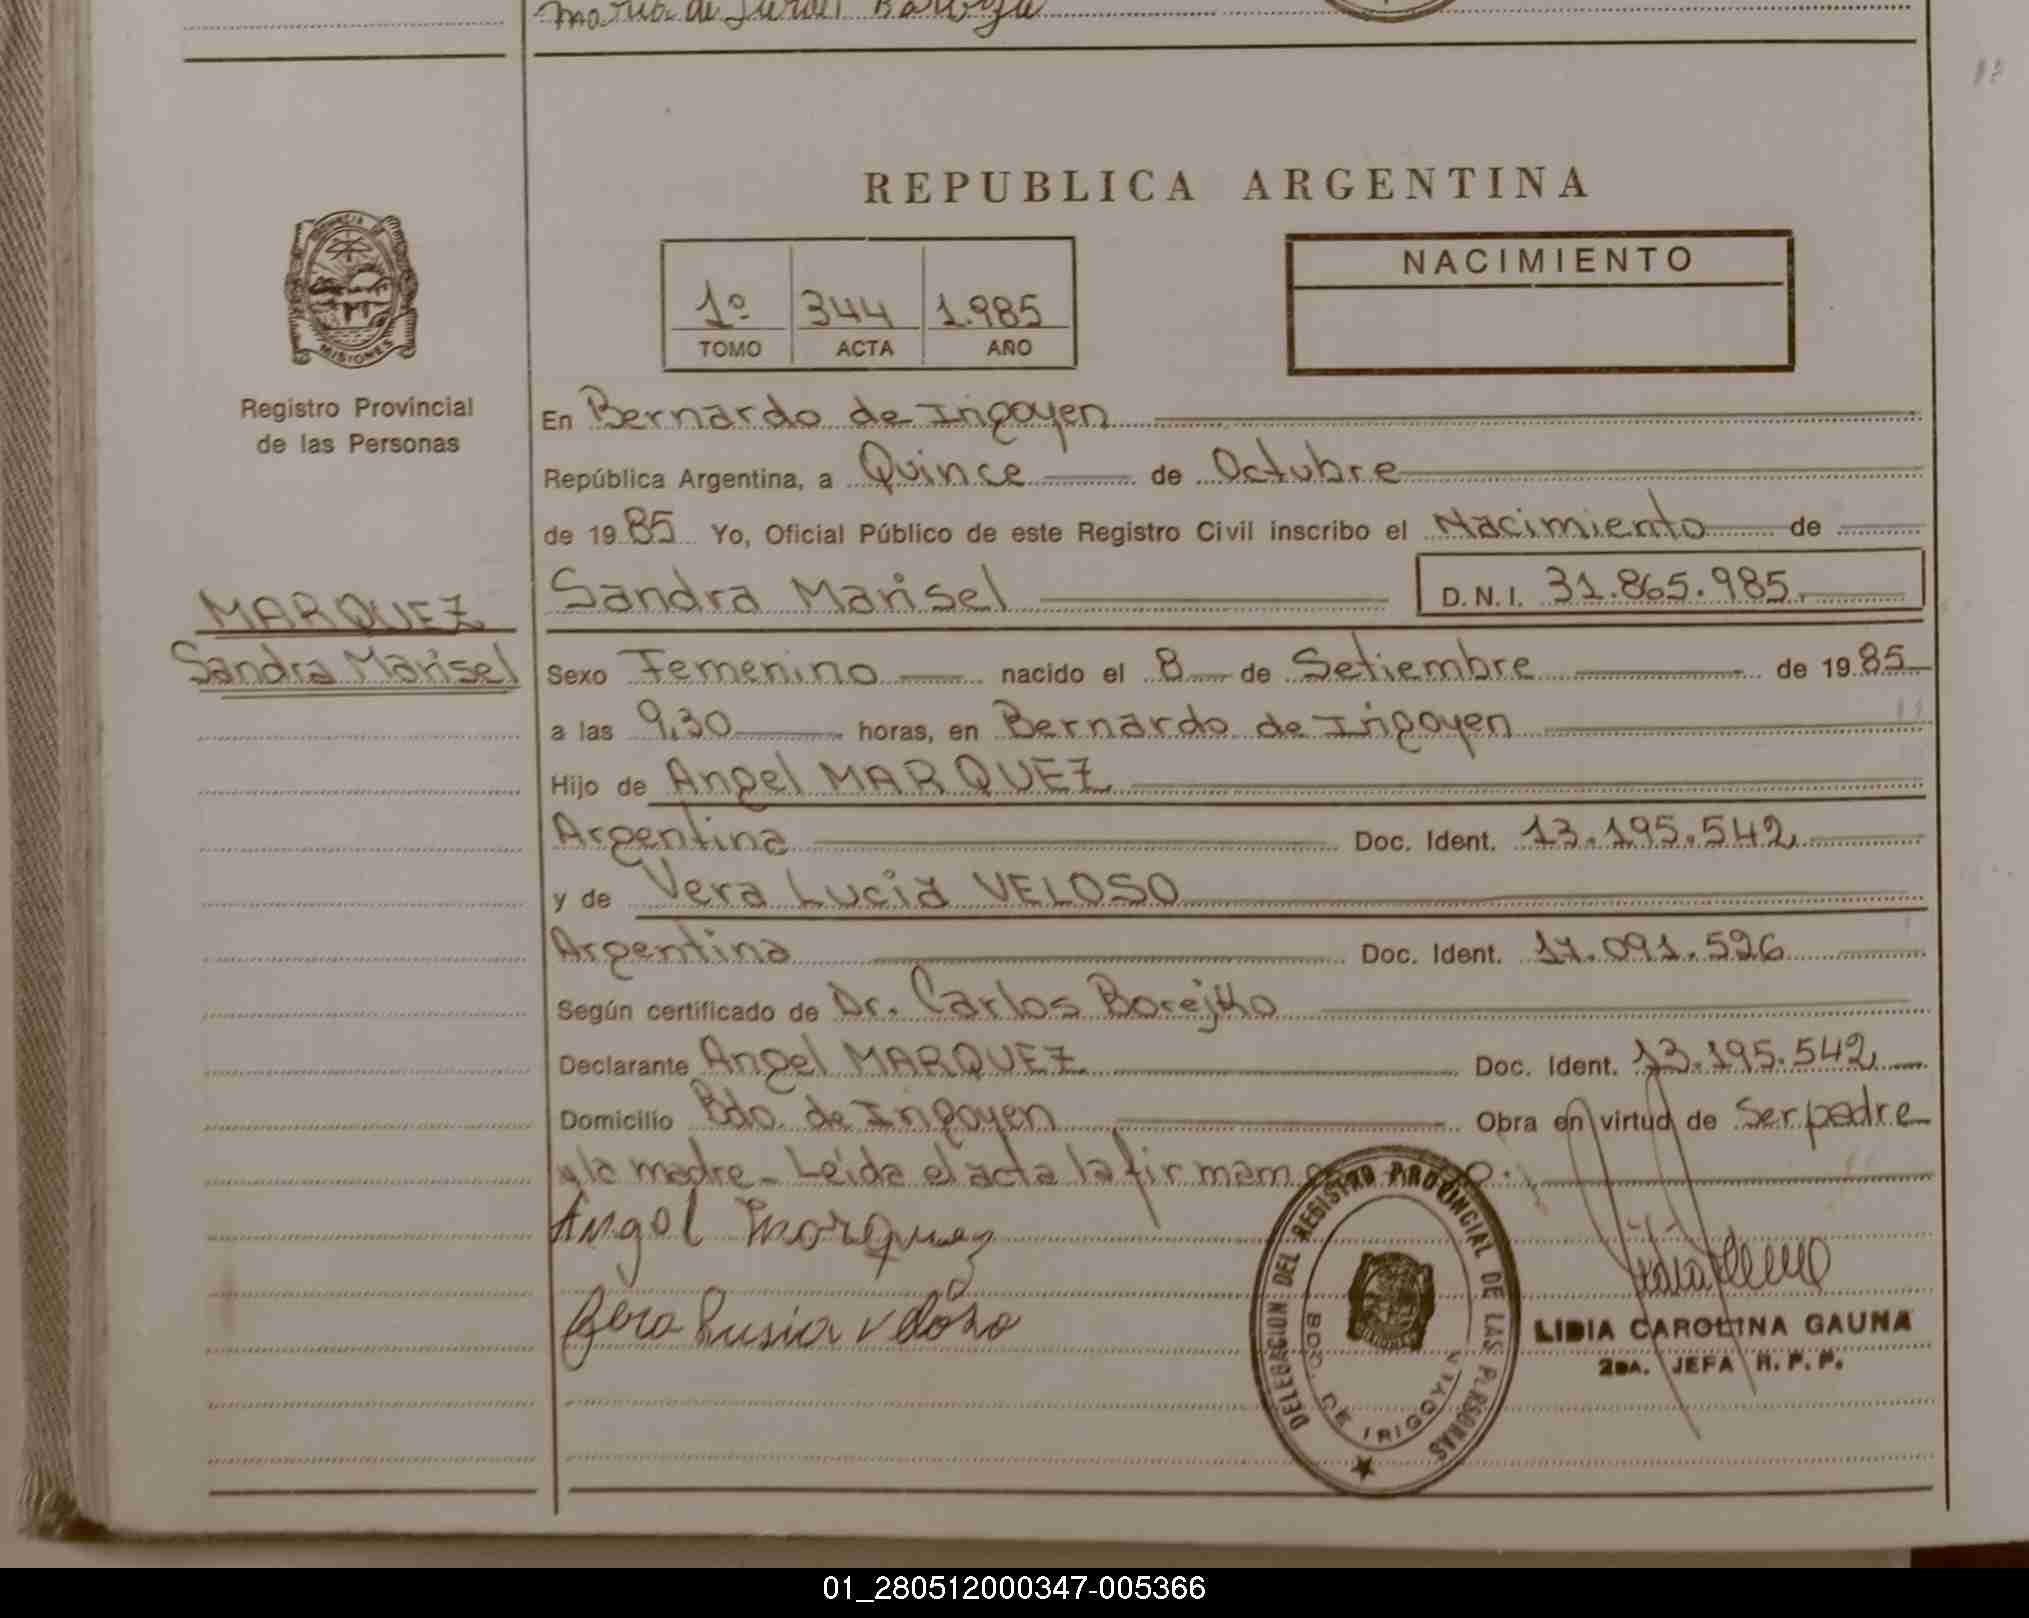 REPUBLICA ARGENTINA
NACIMIENTO
1º 344 1.985
TOMO ACTA AÑO
PROVINCIA
MISIONES
Registro Provincial
de las Personas
MARQUEZ
Sandra Marisel
En Bernardo de Irigoyen
República Argentina, a Quince de Octubre
de 1985 Yo, Oficial Público de este Registro Civil inscribo el Nacimiento de
Sandra Marisel D.N.I. 31.865.985.
Sexo Femenino nacido el 8 de Setiembre de 1985
a las 9,30 horas, en Bernardo de Irigoyen
Hijo de Angel MARQUEZ
Argentina Doc. Ident. 13.195.542
y de Vera Lucia VELOSO
Argentina Doc. Ident. 17.091.526
Según certificado de Dr. Carlos Borejko
Declarante Angel MARQUEZ Doc. Ident. 13.195.542
Domicilio Bdo. de Irigoyen Obra en virtud de Ser padre
y la madre - Leida el acta la firmam
Angel Marquez
Bera Lusia veloso
DELEGACION DEL REGISTRO PROVINCIAL DE LAS PERSONAS
BDO. DE IRIGOYEN
LIDIA CAROLINA GAUNA
2DA. JEFA R.P.P.
01_280512000347-005366